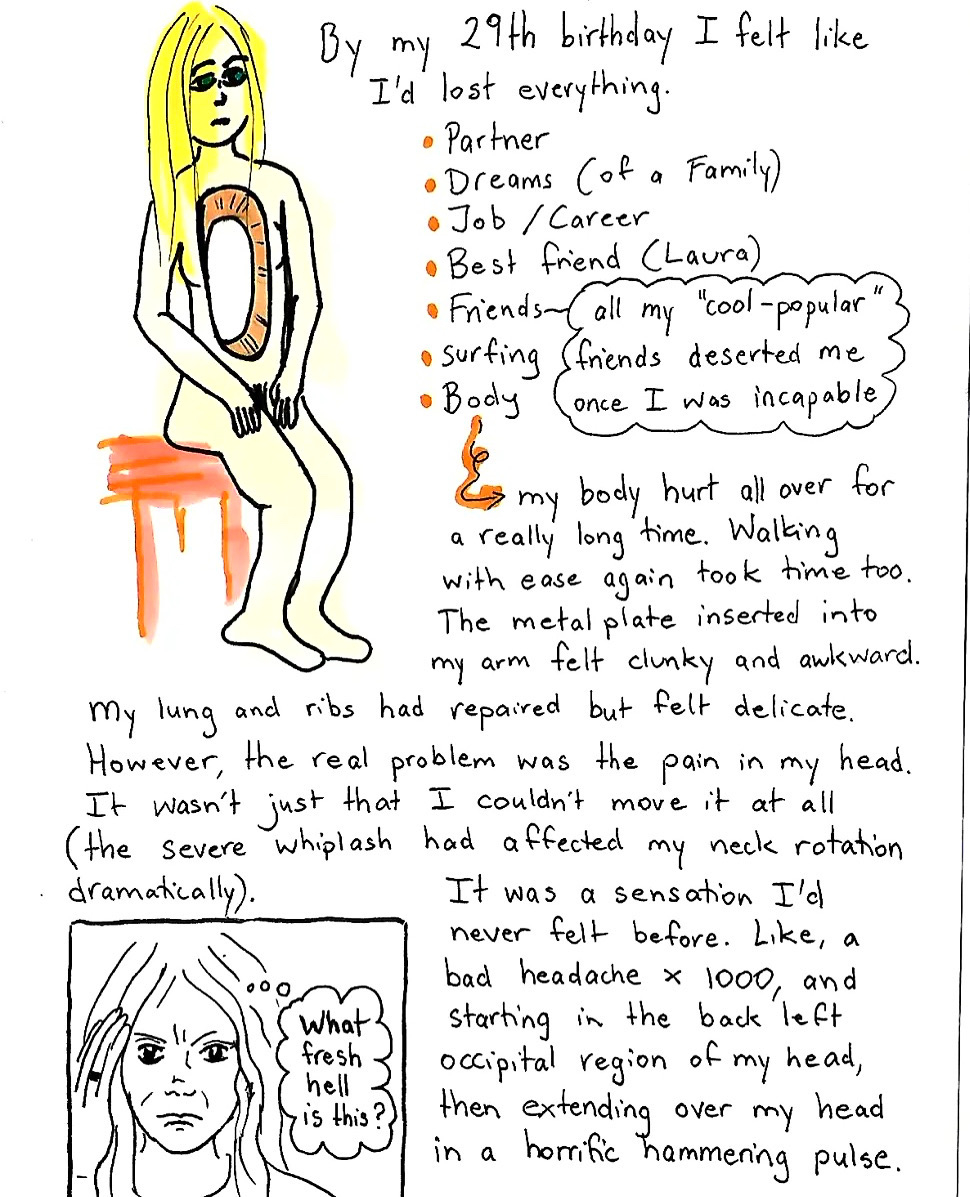 By my 29th birthday I felt like
I'd lost everything.
• Partner
• Dreams (of a Family)
• Job / Career
• Best friend (Laura)
• Friends
all my "cool-popular"
friends deserted me
once I was incapable
• surfing
• Body
my body hurt all over for
a really long time. Walking
with ease again took time too.
The metal plate inserted into
my arm felt clunky and awkward.
My lung and ribs had repaired but felt delicate.
However, the real problem was the pain in my head.
It wasn't just that I couldn't move it at all
(the severe whiplash had affected my neck rotation
dramatically).
It was a sensation I'd
never felt before. Like, a
bad headache x 1000, and
starting in the back left
occipital region of my head,
then extending over my head
in a horrific hammering pulse.
What
fresh
hell
is this?